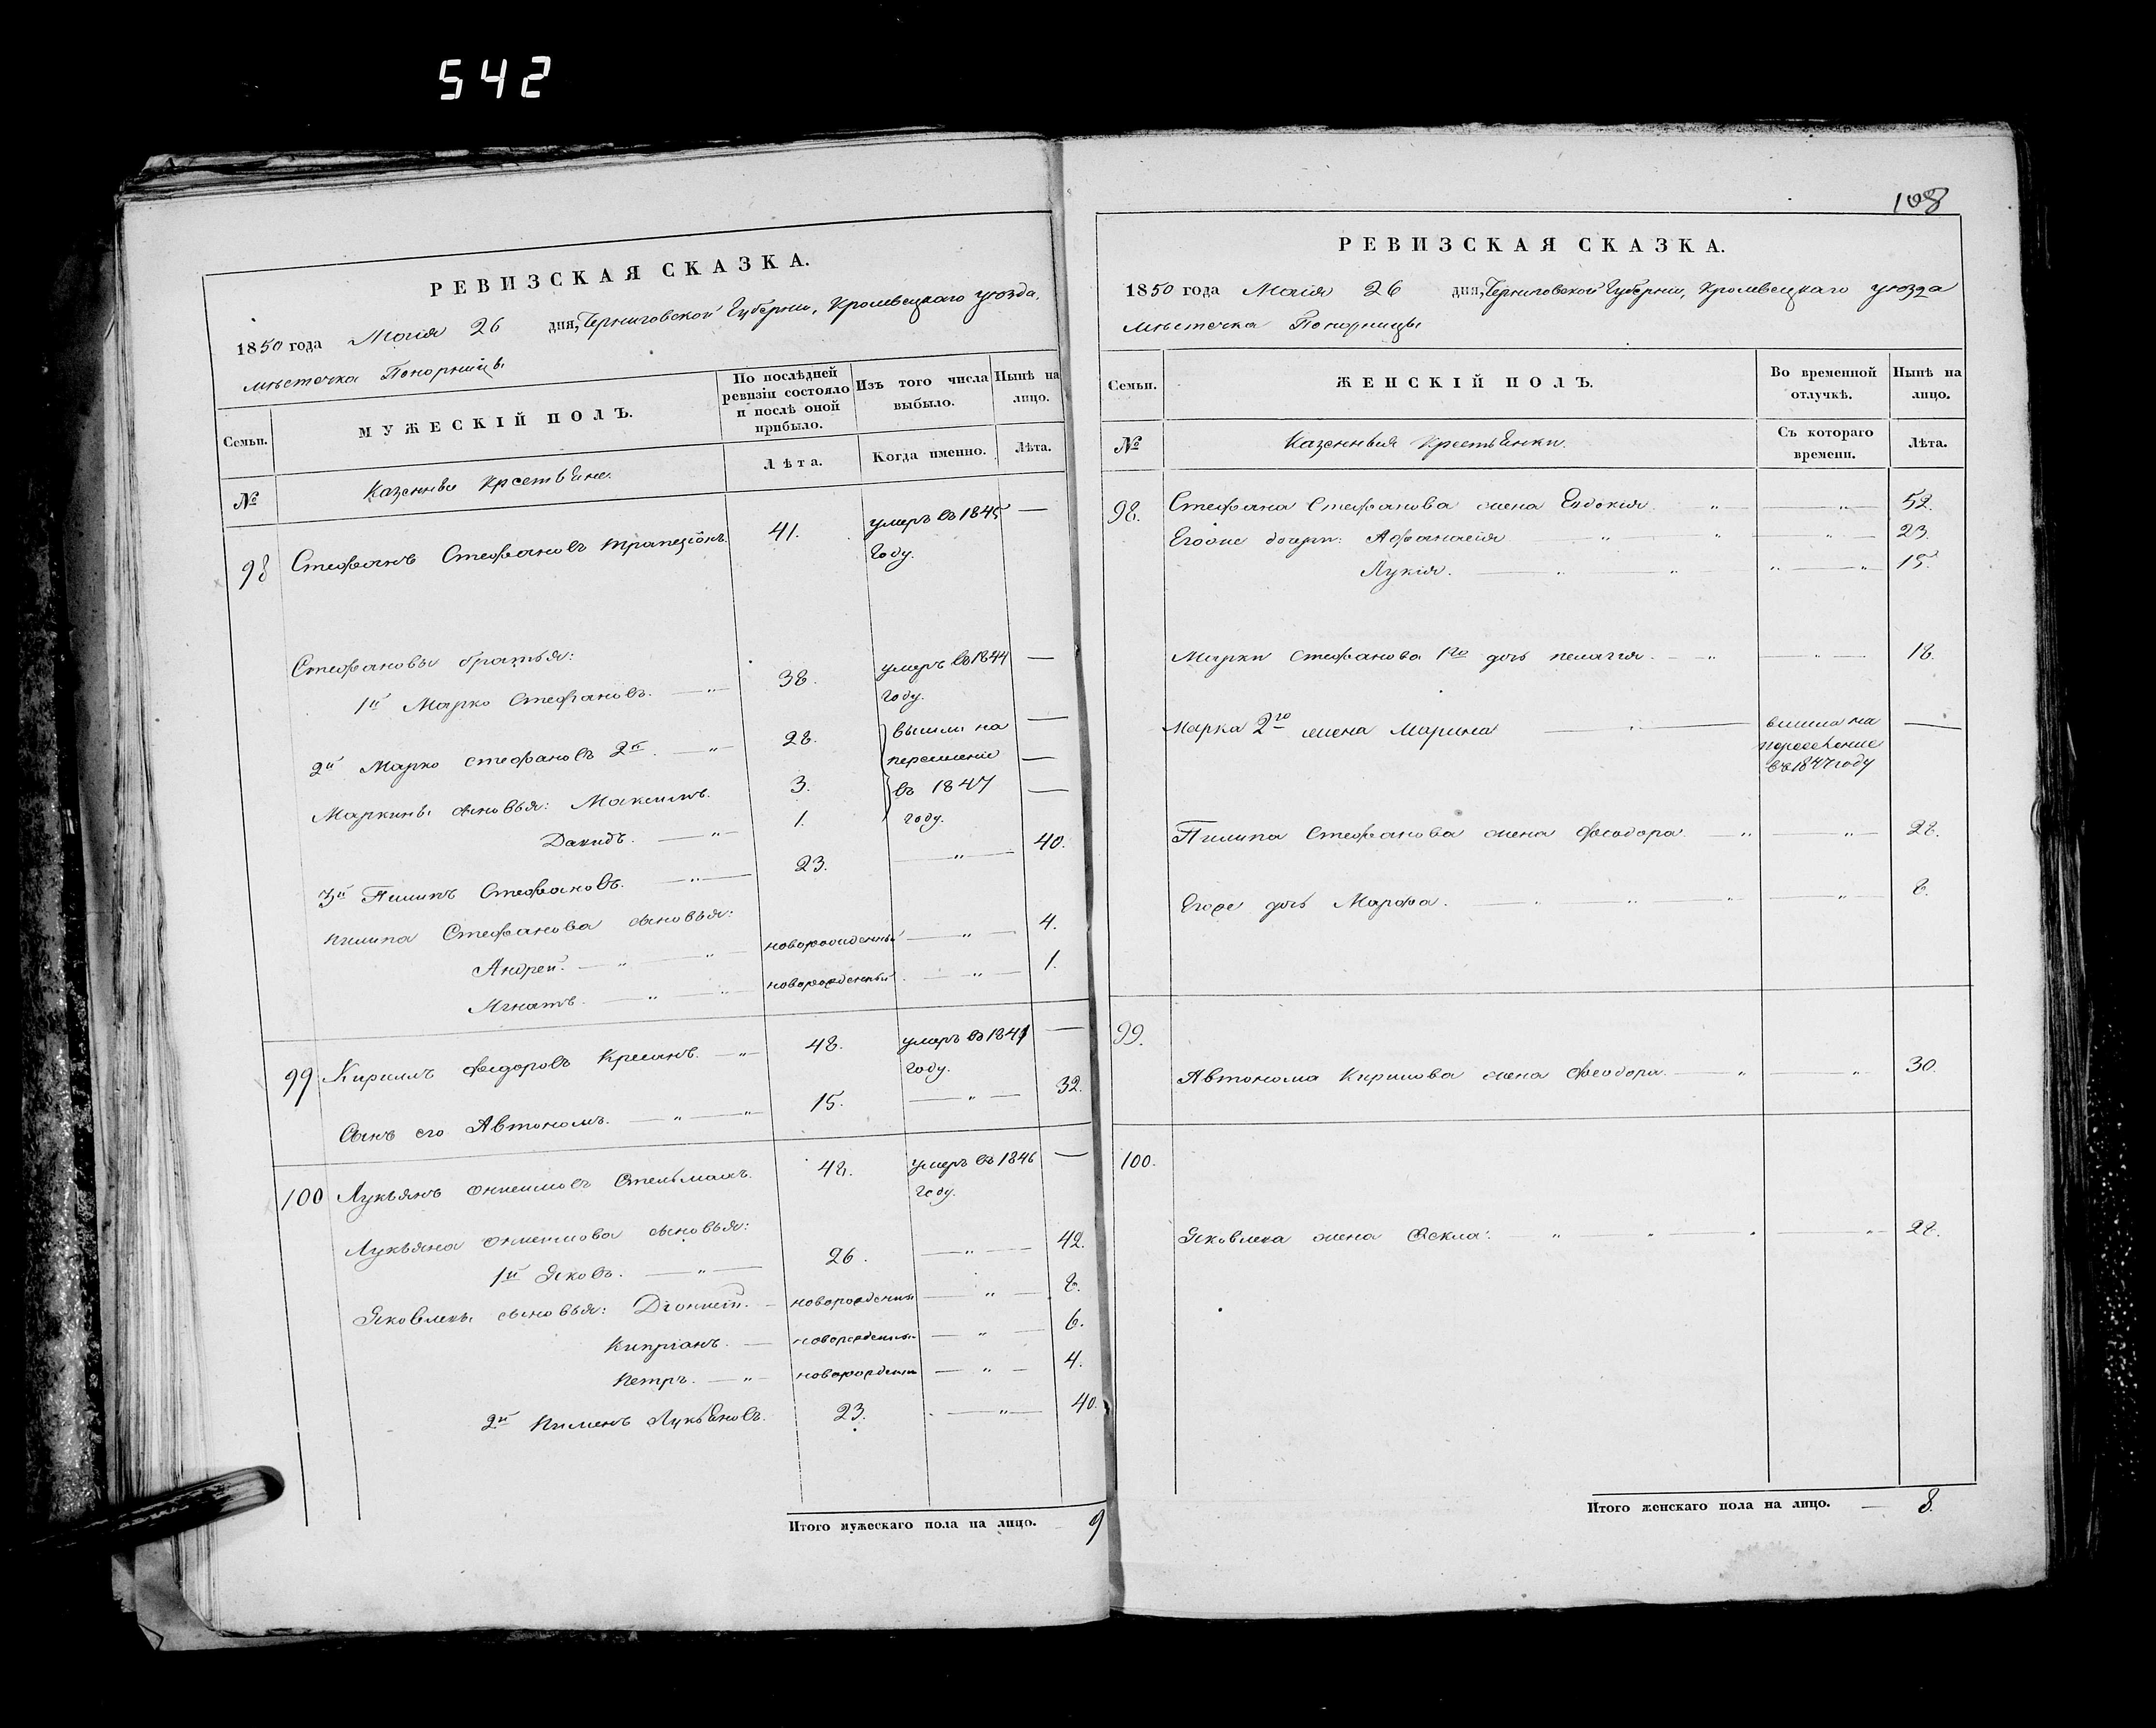 542
РЕВИЗСКАЯ СКАЗКА.
1850 года Маія 26 дня, Черниговской Губерніи, Кролевецкаго уѣзда,
мѣстечка Понорницы
Семьи.
МУЖЕСКІЙ ПОЛЪ.
По послѣдней ревизіи состояло и послѣ оной прибыло.
Изъ того числа выбыло.
Нынѣ на лицо.
Лѣта.
Когда именно.
Лѣта.
№
Казенные Крестьяне.
98 Стефанъ Стефановъ 41. умеръ въ 1845 —
году.
Стефановы братья:
1й Марко Стефановъ. — „ — 38. умеръ въ 1844 —
году.
2й Марко Стефановъ 2й. — „ 28. вышли на —
Маркины сыновья: Максимъ. 3. переселеніе —
Давидъ. — „ — 1. въ 1847 —
году.
3й Пилипъ Стефановъ. — „ — 23. — „ — 40.
Пилипа Стефанова сыновья:
Андрей. — „ — „ — новорожденный — „ — 4.
Игнатъ. — „ — „ — новорожденный — „ — 1.
99 Кирилъ Федоровъ — „ — 48. умеръ въ 1841 —
году.
Сынъ его Автономъ. — „ — „ 15. — „ — 32.
100 Лукьянъ Онисимовъ Стельмахъ. 48. умеръ въ 1846 —
году.
Лукьяна Онисимова сыновья:
1й Яковъ. — „ — 26. — „ — 42.
Яковлевы сыновья: Діонисій. — новорожденный — „ — 8.
Кипріанъ. — новорожденный — „ — 6.
Петръ. — „ — новорожденный — „ — 4.
2й Пименъ Лукьяновъ. 23. — „ — 40.
Итого мужескаго пола на лицо. — 9
108
РЕВИЗСКАЯ СКАЗКА.
1850 года Маія 26 дня, Черниговской Губерніи, Кролевецкаго уѣзда
мѣстечка Понорницы
Семьи.
ЖЕНСКІЙ ПОЛЪ.
Во временной отлучкѣ.
Нынѣ на лицо.
№
Казенныя Крестьянки.
Съ котораго времени.
Лѣта.
98. Стефана Стефанова жена Евдокія. „ — „ — 52.
Егоже дочери: Афанасія — „ — „ — „ — 23.
Лукія. — „ — „ — „ — „ — 15.
Марки Стефанова 1го дочь Пелагія. — „ — „ — 18.
Марка 2го жена Марина — „ — вышла на —
переселеніе
въ 1847 году
Пилипа Стефанова жена Феодора. — „ — „ — 28.
Егоже дочь Марфа. — „ — „ — „ — „ — 8.
99.
Автонома Кирилова жена Феодора. — „ — „ — 30.
100.
Яковлева жена Фекла. „ — „ — „ — „ — 28.
Итого женскаго пола на лицо. — 8.